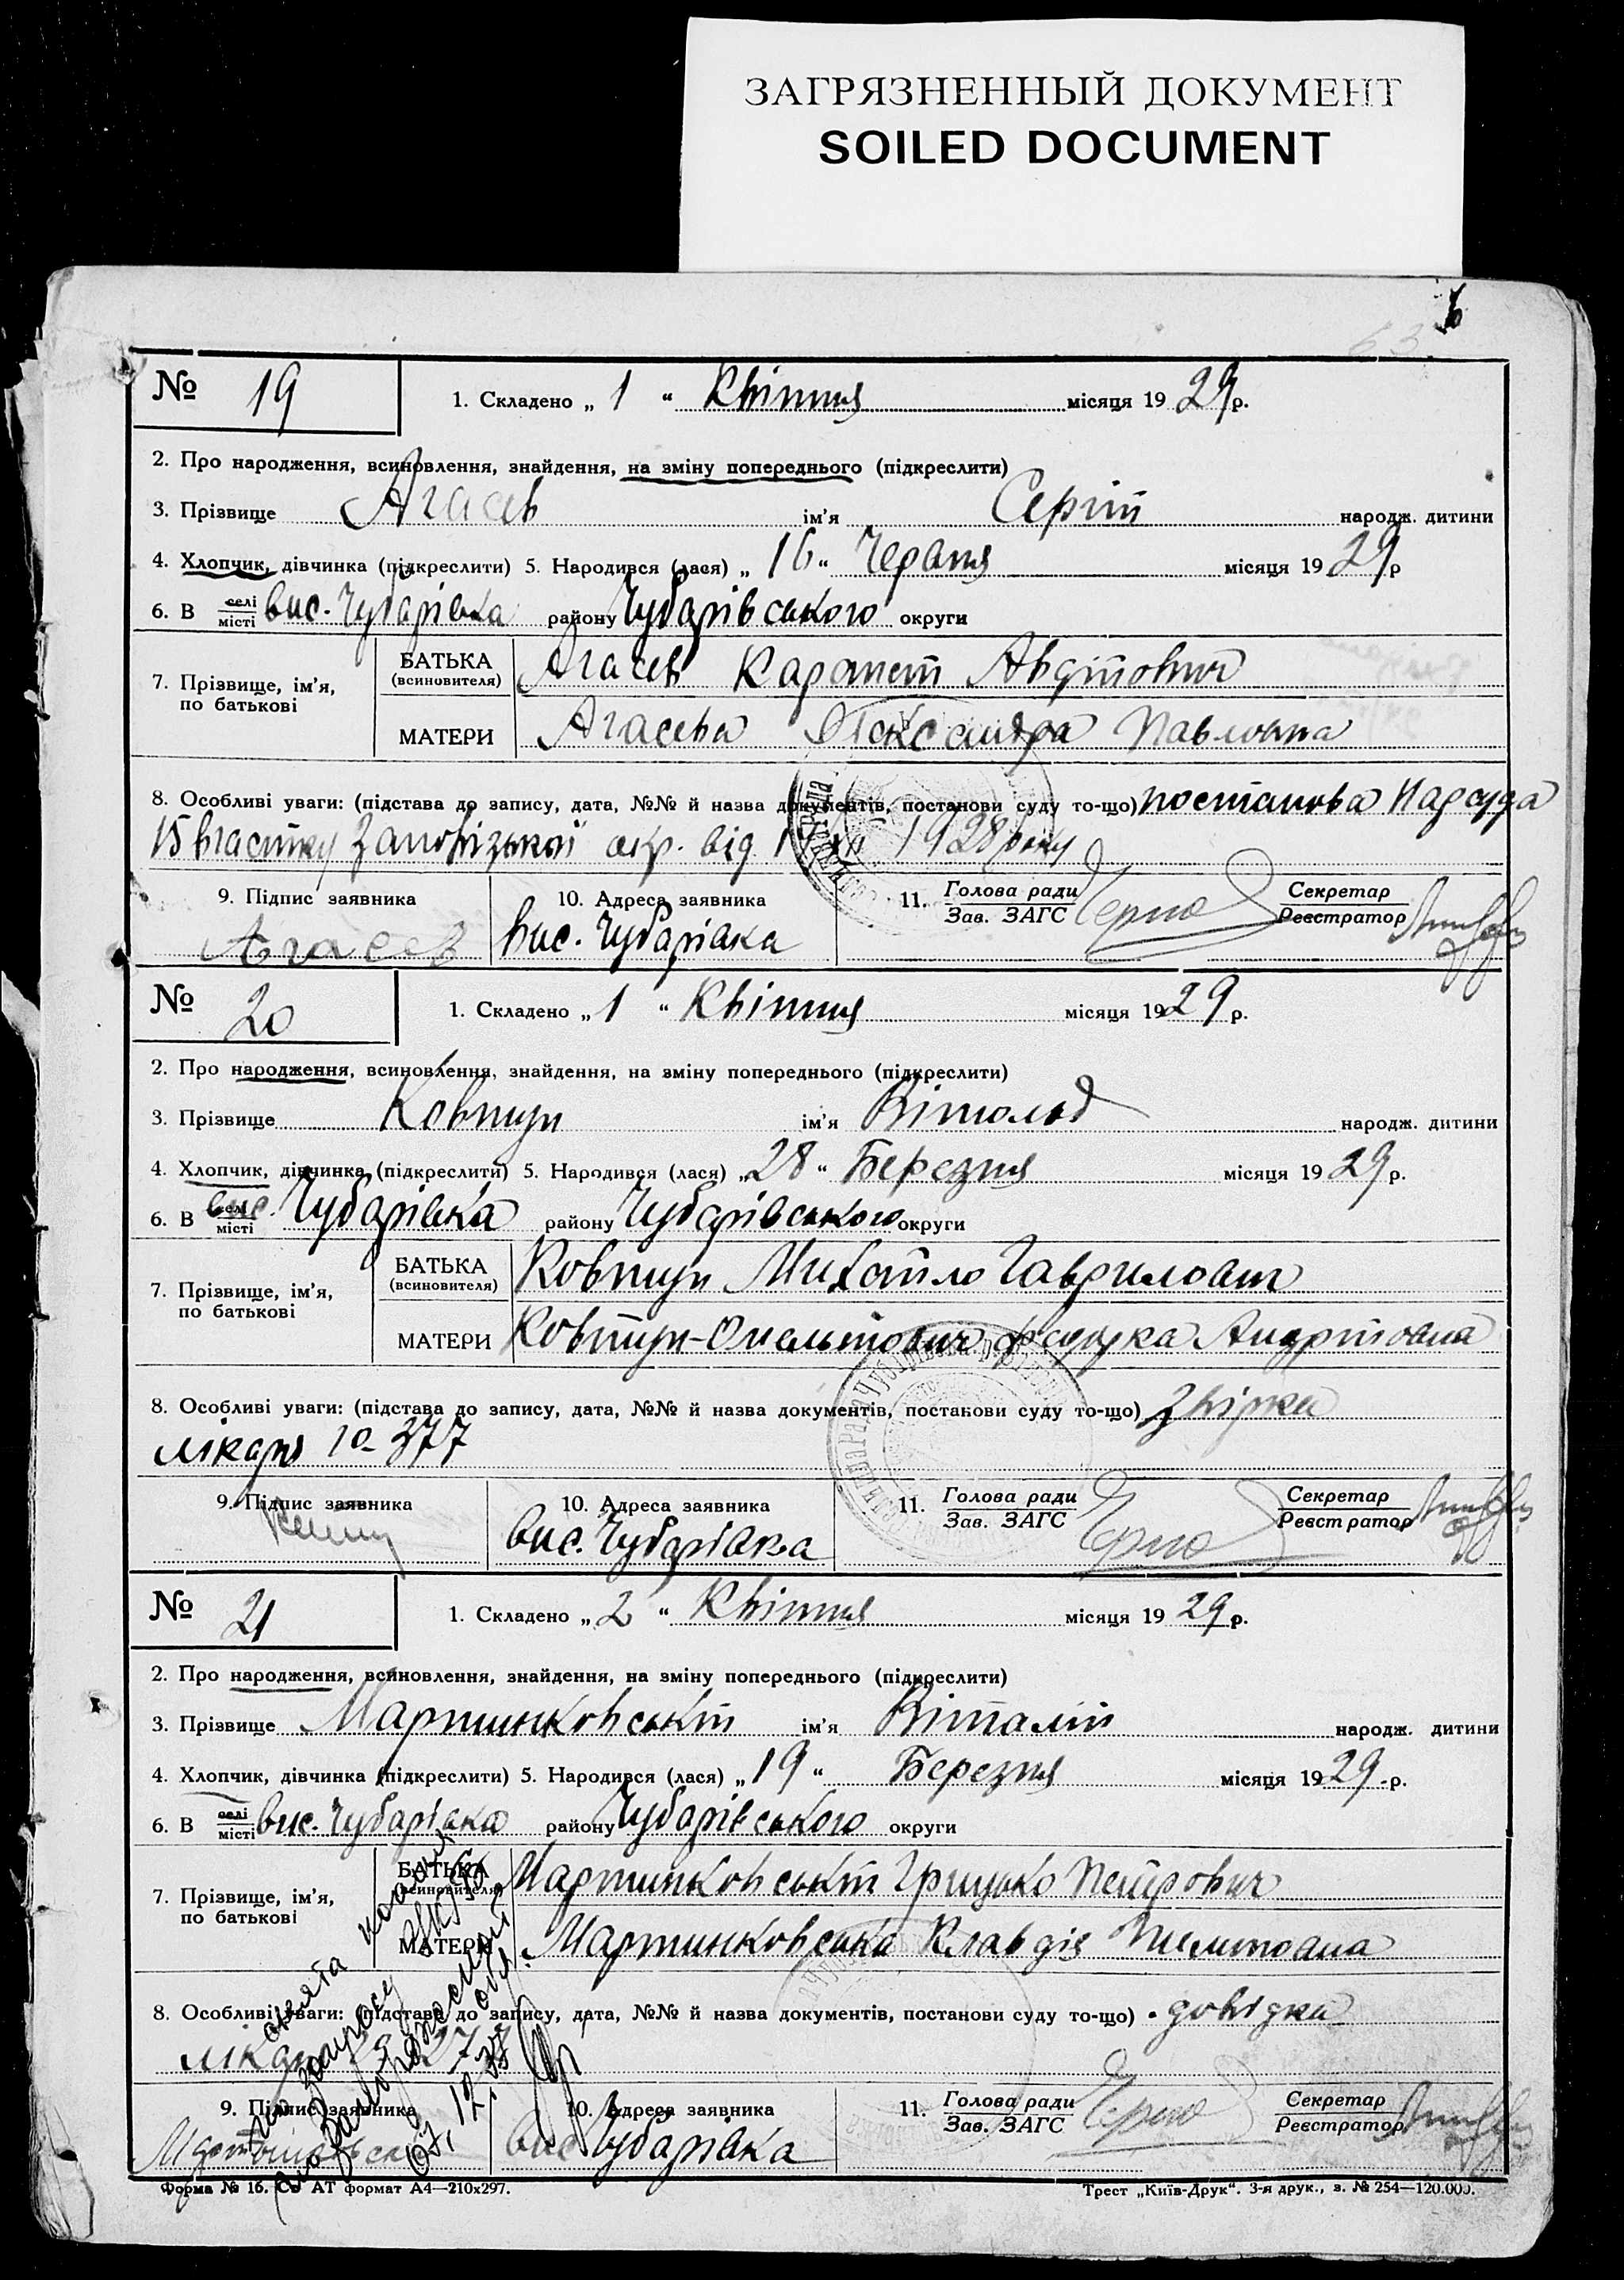 ЗАГРЯЗНЕННЫЙ ДОКУМЕНТ
SOILED DOCUMENT
№ 19
1. Складено „ 1 “ Квітня місяця 1929р.
2. Про народження, всиновлення, знайдення, на зміну попереднього (підкреслити)
3. Прізвище Агасев ім'я Сергій народж. дитини
4. Хлопчик, дівчинка (підкреслити) 5. Народився (лася) „ 16 “ Червня місяця 1929 р
6. В селі місті вис. Чубарівка району Чубарівського округи
7. Прізвище, ім'я, по батькові
БАТЬКА (всиновителя) Агасев Карапет Авдійович
МАТЕРИ Агасева Олександра Павловна
8. Особливі уваги: (підстава до запису, дата, №№ й назва документів, постанови суду то-що) постанова Нарсуда
15 вчастку Запорізької окр. від 1928 року
9. Підпис заявника
Агасев
10. Адреса заявника
вис. Чубарівка
11. Голова ради
Зав. ЗАГС
Секретар
Реєстратор
№ 20
1. Складено „ 1 “ Квітня місяця 1929 р.
2. Про народження, всиновлення, знайдення, на зміну попереднього (підкреслити)
3. Прізвище Ковтун ім'я Вітольд народж. дитини
4. Хлопчик, дівчинка (підкреслити) 5. Народився (лася) „ 28 “ Березня місяця 1929 р.
6. В селі місті вис. Чубарівка району Чубарівського округи
7. Прізвище, ім'я, по батькові
БАТЬКА (всиновителя) Ковтун Михайло Гаврилович
МАТЕРИ Ковтун- Андрійовна
8. Особливі уваги: (підстава до запису, дата, №№ й назва документів, постанови суду то-що)
лікаря 377
9. Підпис заявника
10. Адреса заявника
вис. Чубарівка
11. Голова ради
Зав. ЗАГС
Секретар
Реєстратор
№ 21
1. Складено „ 2 “ Квітня місяця 1929 р.
2. Про народження, всиновлення, знайдення, на зміну попереднього (підкреслити)
3. Прізвище Мартинковський ім'я Віталій народж. дитини
4. Хлопчик, дівчинка (підкреслити) 5. Народився (лася) „ 19 “ Березня місяця 1929 р.
6. В селі місті вис. Чубарівка району Чубарівського округи
7. Прізвище, ім'я, по батькові
БАТЬКА (всиновителя) Мартинковський Грицько Петрович
МАТЕРИ Мартинковська Клавдія Пилиповна
8. Особливі уваги: (підстава до запису, дата, №№ й назва документів, постанови суду то-що) довідка
лікаря
9. Підпис заявника
10. Адреса заявника
вис Чубарівка
11. Голова ради
Зав. ЗАГС
Секретар
Реєстратор
Форма № 16. Ст АТ формат А4—210x297.
Трест „Київ-Друк“. 3-я друк., з. № 254—120.000.